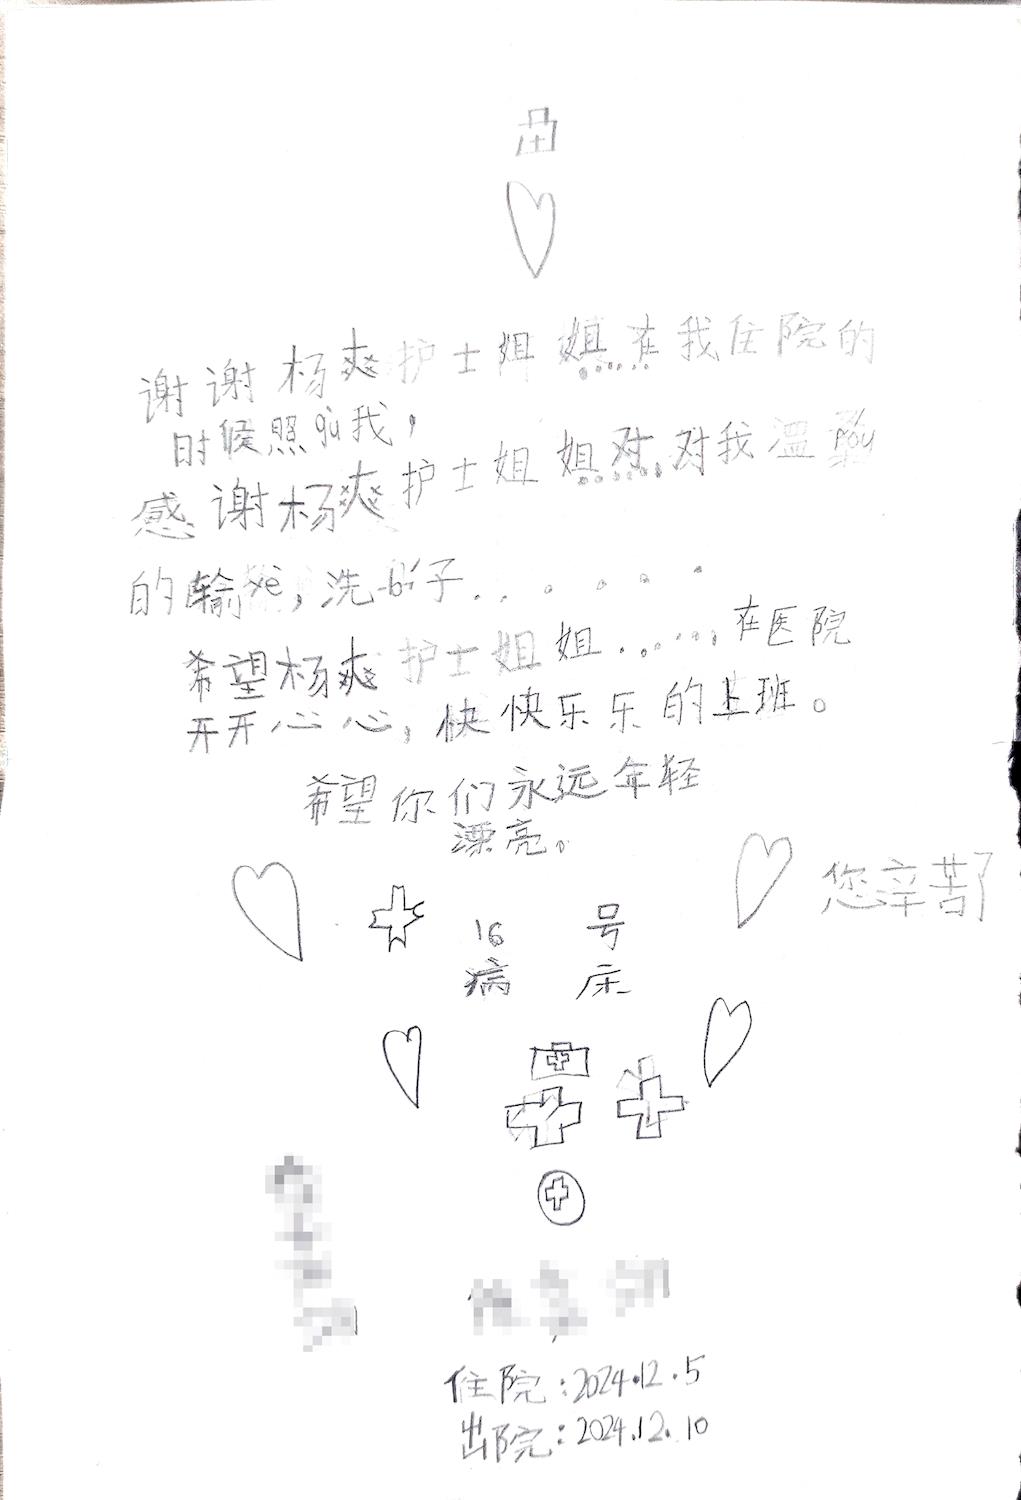 谢谢杨爽护士姐姐……在我住院的
时候照gù我，
感谢杨爽护士姐姐对……对我温rou
的输yè，洗bí子......
希望杨爽护士姐姐……，在医院
开开心心，快快乐乐的上班。
希望你们永远年轻
漂亮。
您辛苦了
16 号
病 床
住院：2024.12.5
出院：2024.12.10